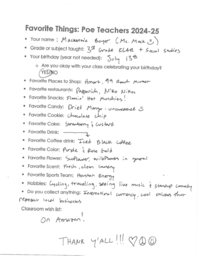 Favorite Things: Poe Teachers 2024-25
• Your name: Mackenzie Boyer (Ms. Mack)
• Grade or subject taught: 3rd Grade ELAR + Social Studies
• Your birthday (year not needed): July 13th
o Are you okay with your class celebrating your birthday?
YES/NO
• Favorite Places to Shop: Amazon, 99 Ranch Market
• Favorite restaurants: Niko Nikos
• Favorite Snacks: Flamin' Hot Munchies!
• Favorite Candy: Dried Mango - unsweetened
• Favorite Cookie: chocolate chip
• Favorite Cake: strawberry + custard
• Favorite Drink:
• Favorite Coffee drink: Iced Black Coffee
• Favorite Color: Purple & Rose Gold
• Favorite Flower: Sunflower, wildflowers in general
• Favorite Scent: Fresh, clean laundry
• Favorite Sports Team: Houston
• Hobbies: Cycling, traveling, seeing live music & standup comedy
• Do you collect anything: International currency,
local
Classroom wish list:
On Amazon!
THANK Y'ALL!!!